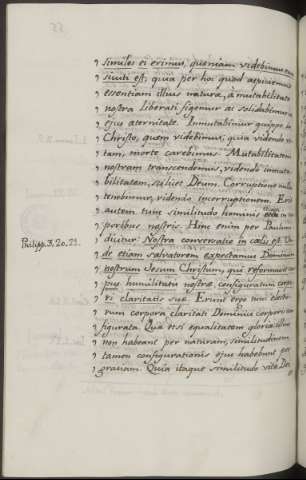 similes ei erimus, quoniam videbimus eum
sicuti est; quia per hoc quod aspiciemus
essentiam illius naturæ, à mutabilitate
nostra liberati figemur ac solidabimur in
ejus æternitate. Immutabimur quippe in
Christo, quem videbimus, quia videndo vi-
tam, morte carebimus. Mutabilitatem
nostram transcendemus, videndo immuta-
bilitatem, scilicet Deum. Corruptione nulla
tenebimur, videndo incorruptionem. Erit
autem tunc similitudo humanis etiam cor-
poribus nostris. Hinc enim per Paulum
dicitur: Nostra conversatio in cœlis est. Un-
Philipp. 3, 20, 21.
de etiam salvatorem expectamus Dominum
nostrum Jesum Christum, qui reformabit cor-
pus humilitatis nostræ configuratum corpo-
ri claritatis suæ. Erunt ergo tunc electo-
rum corpora claritati Dominici corporis con-
figurata. Quæ etsi equalitatem gloriæ illius
non habeant per naturam, similitudinem
tamen configurationis ejus habebunt per
gratiam. Quia itaque similitudo vitæ Dei